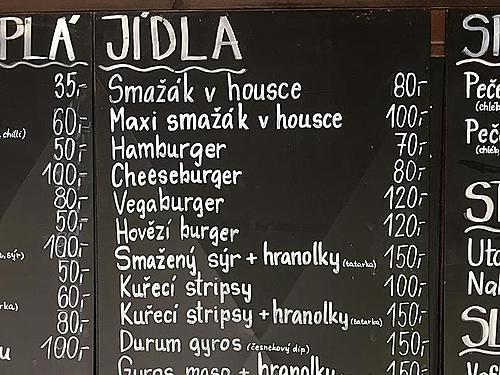 PLÁ
35,-
60,-
chilli)
50,-
100,-
80,-
50,-
100,-
, sýr)
50,-
60,-
rka)
80,-
u 100,-
JÍDLA
Smažák v housce 80,-
Maxi smažák v housce 100,-
Hamburger 70,-
Cheeseburger 80,-
Vegaburger 120,-
Hovězí burger 120,-
Smažený sýr + hranolky (tatarka) 150,-
Kuřecí stripsy 100,-
Kuřecí stripsy + hranolky (tatarka) 150,-
Durum gyros (česnekový dip) 150,-
Gyros maso + hranolky 150,-
Peče
(chléb
Peč
(chléb
S
Uto
Nak
SL